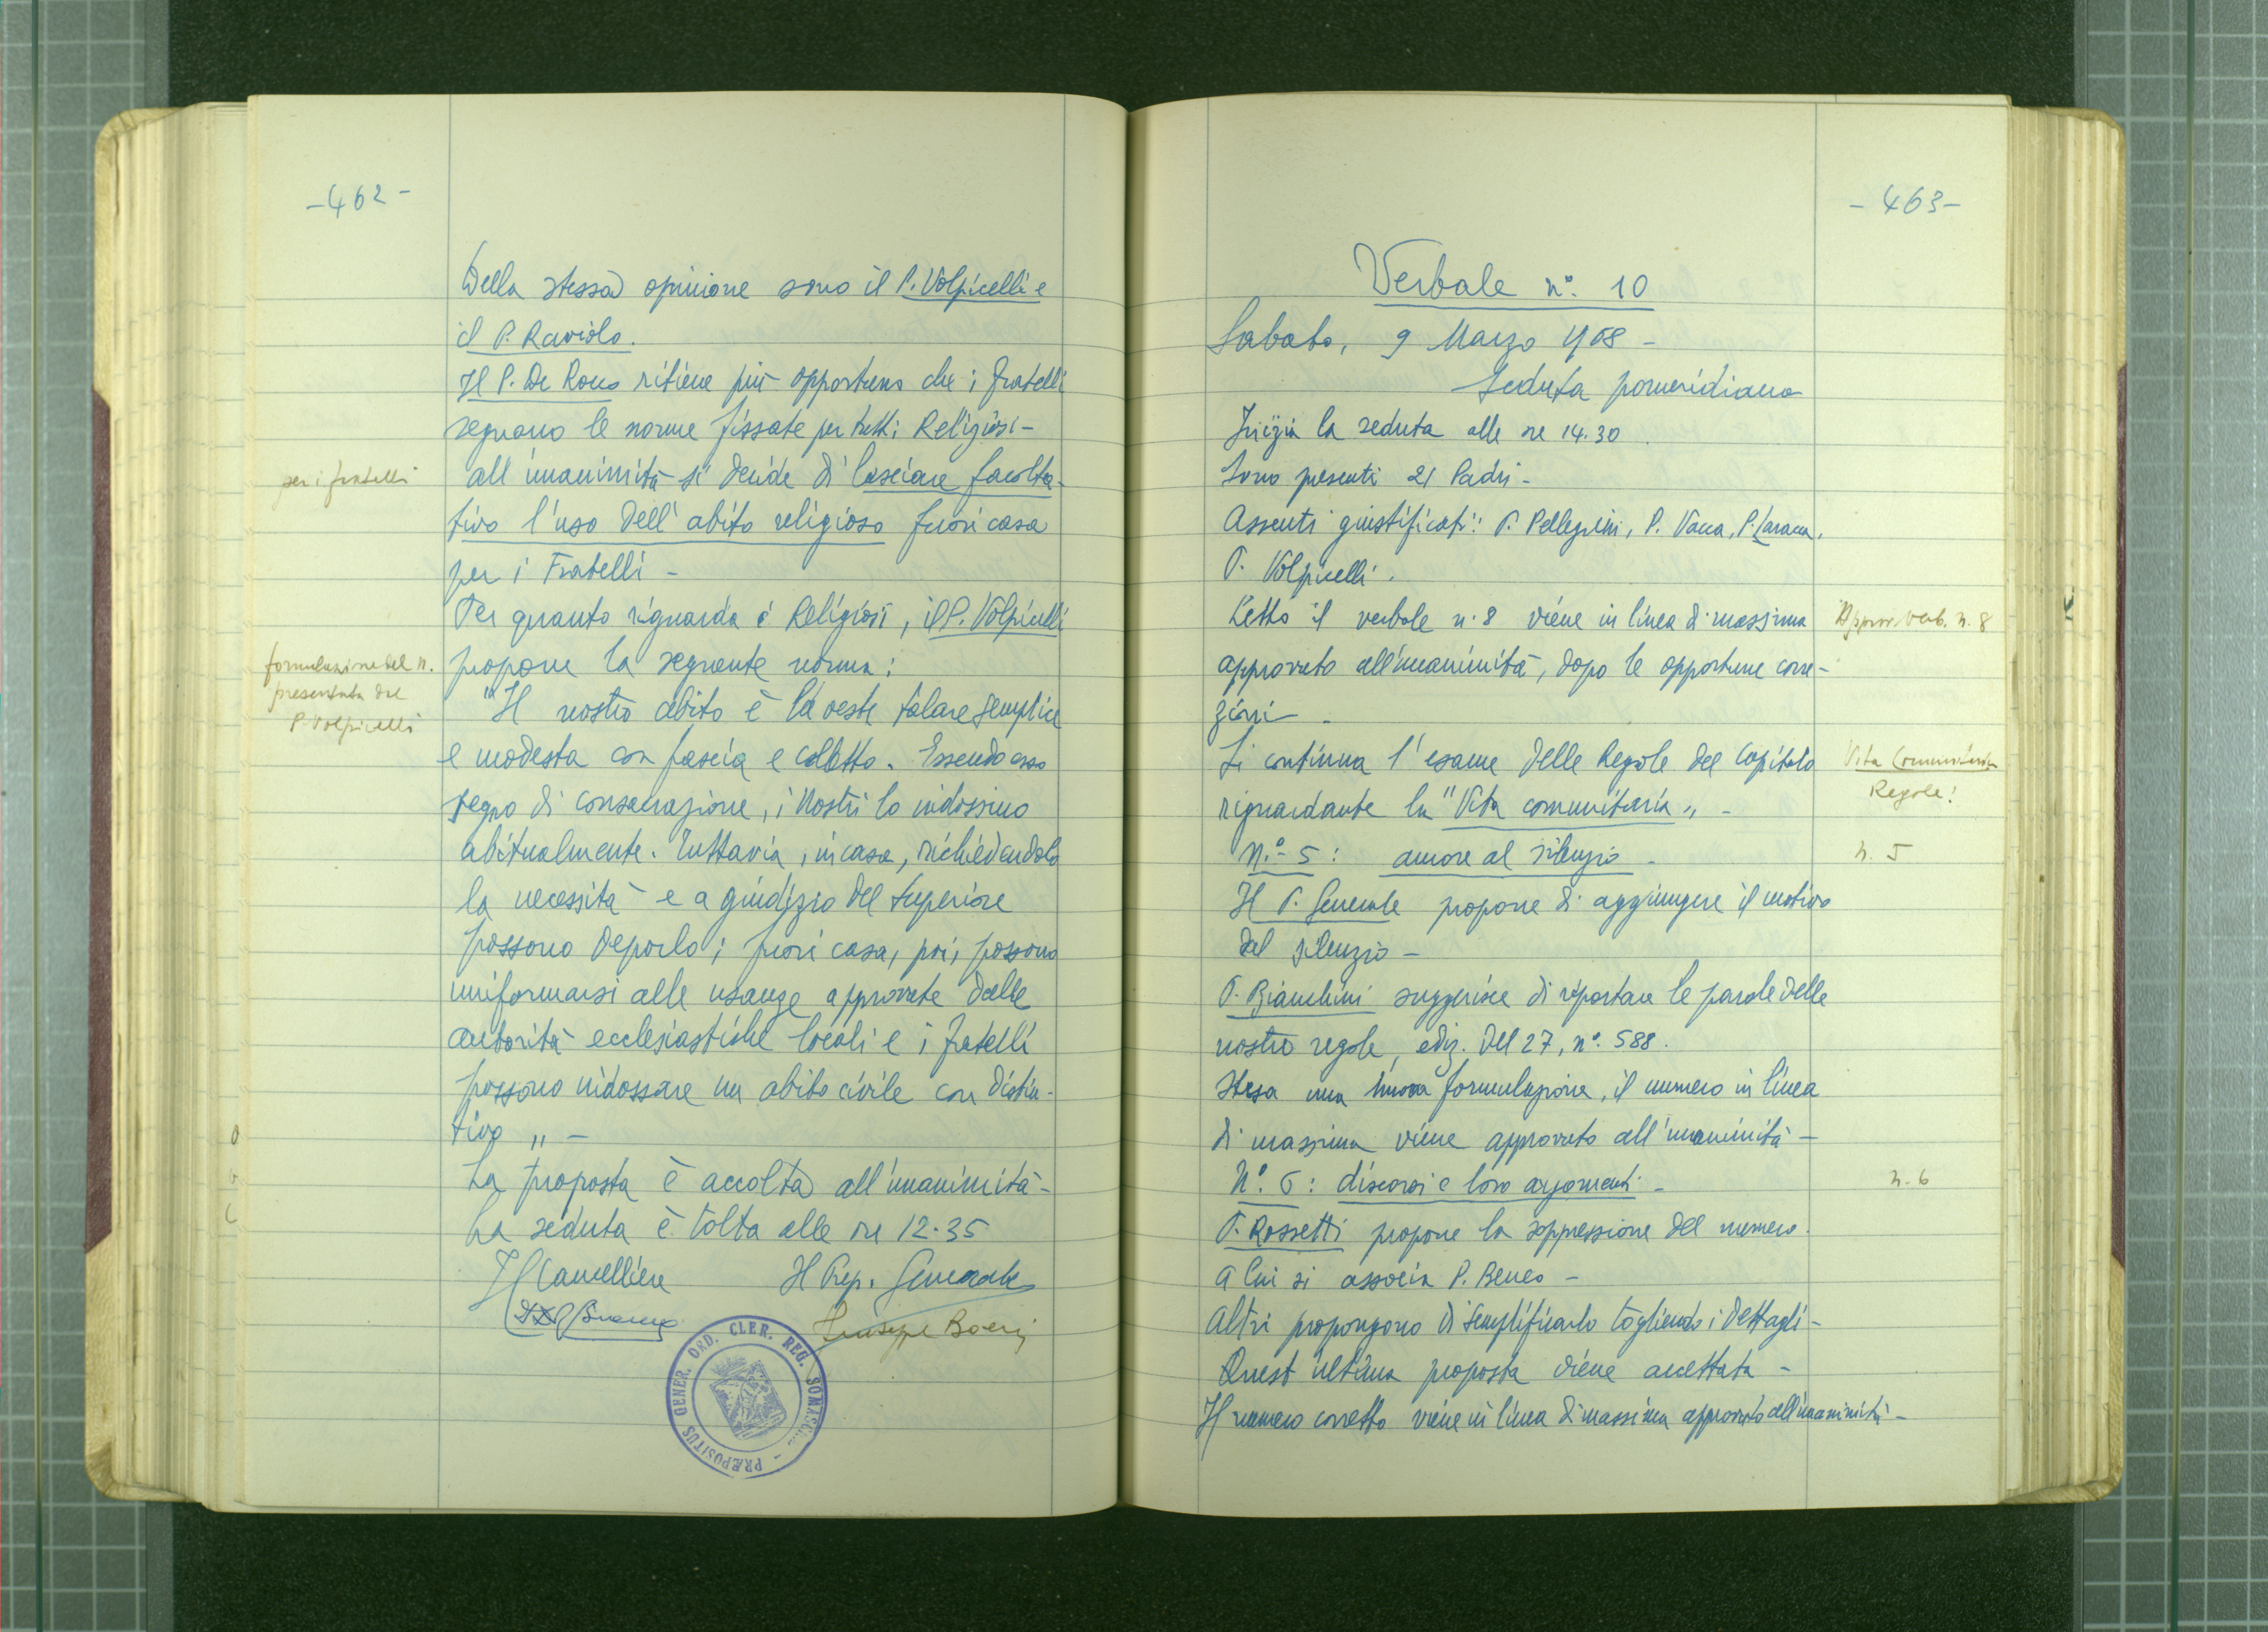 -462-
Della stessa opinione sono il P. Volpicelli e
il P. Raviolo.
Il P. De Rocco ritiene più opportuno che i fratelli
seguano le norme fissate per tutti i Religiosi -
per i fratelli
all'unanimità si decide di lasciare facolta-
tivo l'uso dell'abito religioso fuori casa
per i Fratelli -
Per quanto riguarda i Religiosi, il P. Volpicelli
formulazione del n.
presentata dal
P. Volpicelli
propone la seguente norma:
"Il nostro abito è la veste talare semplice
e modesta con fascia e colletto. Essendo esso
segno di consacrazione, i Nostri lo indossino
abitualmente. Tuttavia, in casa, richiedendolo
la necessità e a giudizio del Superiore
possono deporlo; fuori casa, poi, possono
uniformarsi alle usanze approvate dalle
autorità ecclesiastiche locali e i fratelli
possono indossare un abito civile con distin-
tivo " -
La proposta è accolta all'unanimità -
La seduta è tolta alle ore 12.35
Il Cancelliere Il Prep. Generale
Giuseppe Boeris
PRÆPOSITUS GENER. ORD. CLER. REG. SOMASCH.
-463-
Verbale n° 10
Sabato, 9 Marzo 1968 -
Seduta pomeridiana
Inizia la seduta alle ore 14.30
Sono presenti 21 Padri -
Assenti giustificati: P. Pellegrini, P. Vacca,
P. Volpicelli.
Letto il verbale n. 8 viene in linea di massima
Approv. Verb. n. 8
approvato all'unanimità, dopo le opportune corre-
zioni -
Si continua l'esame delle Regole del Capitolo
Vita Comunitaria
Regole!
riguardante la "Vita comunitaria" -
n.° 5: amore al silenzio -
n. 5
Il P. Generale propone di aggiungere il motivo
del silenzio -
P. Bianchini suggerisce di riportare le parole delle
nostre regole, ediz. del 27, n° 588.
Stesa una nuova formulazione, il numero in linea
di massima viene approvato all'unanimità -
N° 6: discorsi e loro argomenti -
n. 6
P. Rossetti propone la soppressione del numero.
A lui si associa P. Beneo -
Altri propongono di semplificarlo togliendo i dettagli -
Quest'ultima proposta viene accettata -
Il numero corretto viene in linea di massima approvato all'unanimità -